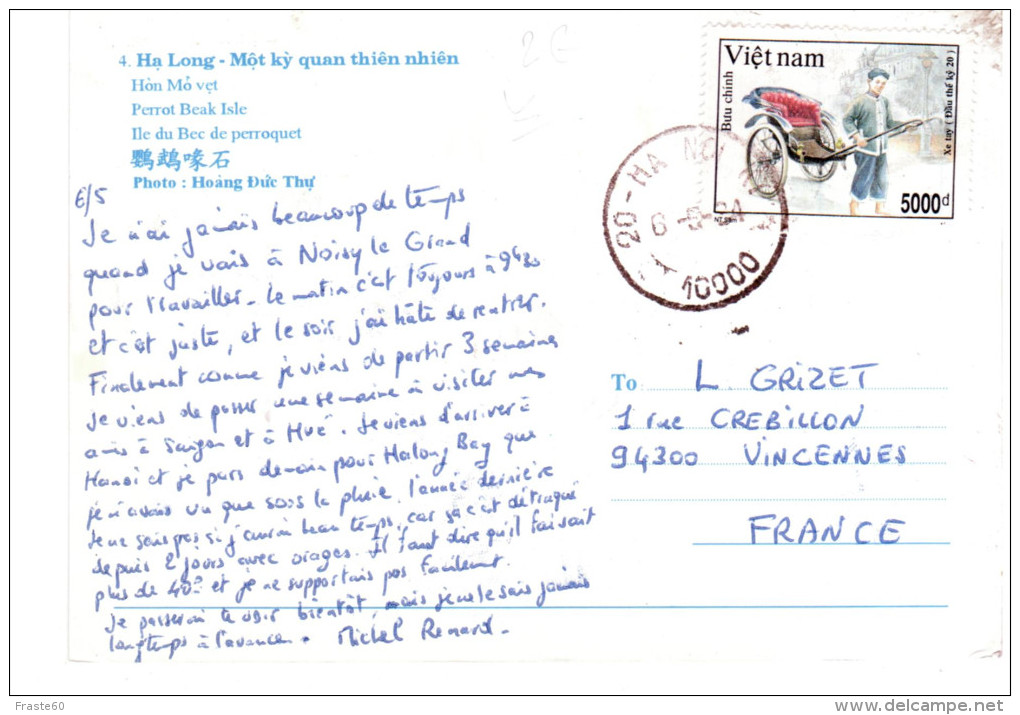 4. Hạ Long - Một kỳ quan thiên nhiên
Hòn Mỏ vẹt
Perrot Beak Isle
Ile du Bec de perroquet
鸚鵡喙石
Photo : Hoàng Đức Thự
2€
6/5
Je n'ai jamais beaucoup de temps
quand je vais à Noisy le Grand
pour travailler - Le matin c'est toujours à 9h30
et c'est juste, et le soir j'ai hâte de rentrer.
Finalement comme je viens de partir 3 semaines
je viens de passer une semaine à visiter mes
amis à Saigon et à Hué. Je viens d'arriver à
Hanoi et je pars demain pour Halong Bay que
je n'avais vu que sous la pluie l'année dernière
Je ne sais pas si j'aurai beau temps, car ça c'est détraqué
depuis 2 jours avec orages. Il faut dire qu'il faisait
plus de 40° et je ne supportais pas facilement.
Je passerai te voir bientôt, mais je ne le sais jamais
longtemps à l'avance. Michel Renard -
Việt nam
Bưu chính
Xe tay ( Đầu thế kỷ 20 )
5000đ
20 - HA NOI
10000
To L. GRIZET
1 rue CREBILLON
94300 VINCENNES
FRANCE
Fraste60
www.delcampe.net